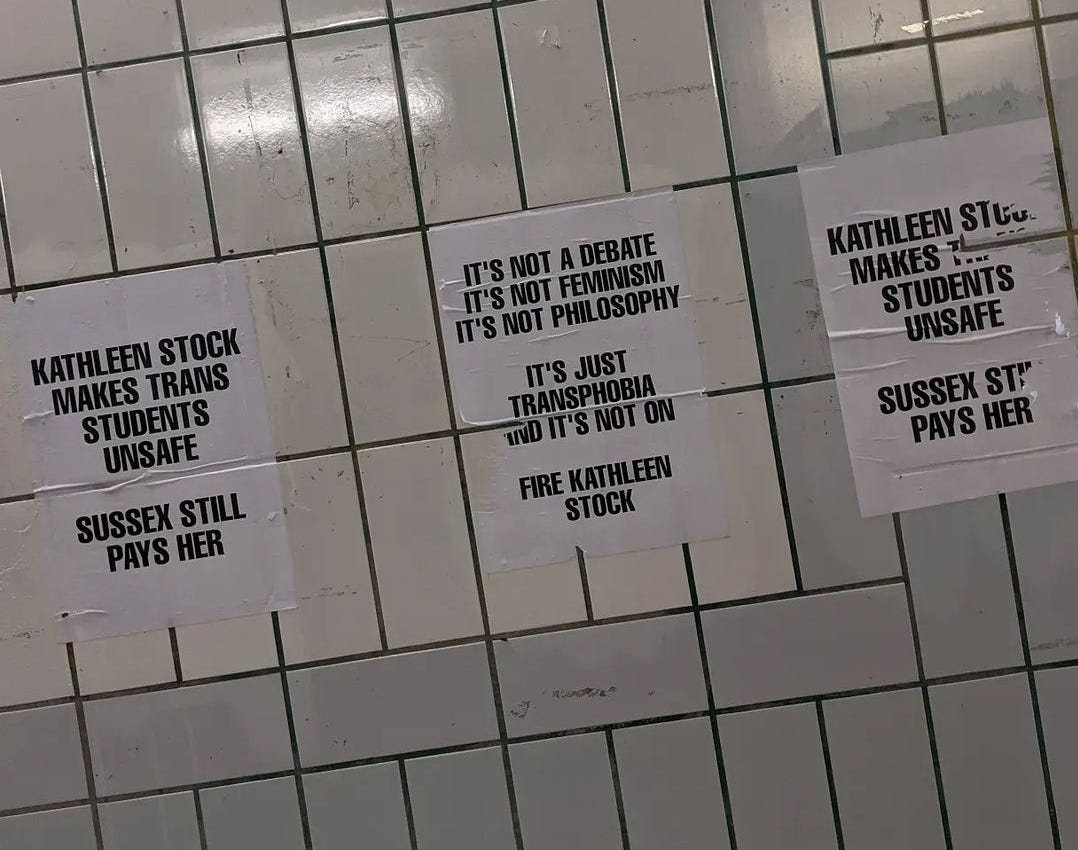 KATHLEEN STOCK
MAKES TRANS
STUDENTS
UNSAFE
SUSSEX STILL
PAYS HER
IT'S NOT A DEBATE
IT'S NOT FEMINISM
IT'S NOT PHILOSOPHY
IT'S JUST
TRANSPHOBIA
AND IT'S NOT ON
FIRE KATHLEEN
STOCK
KATHLEEN
MAKES
STUDENTS
UNSAFE
SUSSEX
PAYS HER